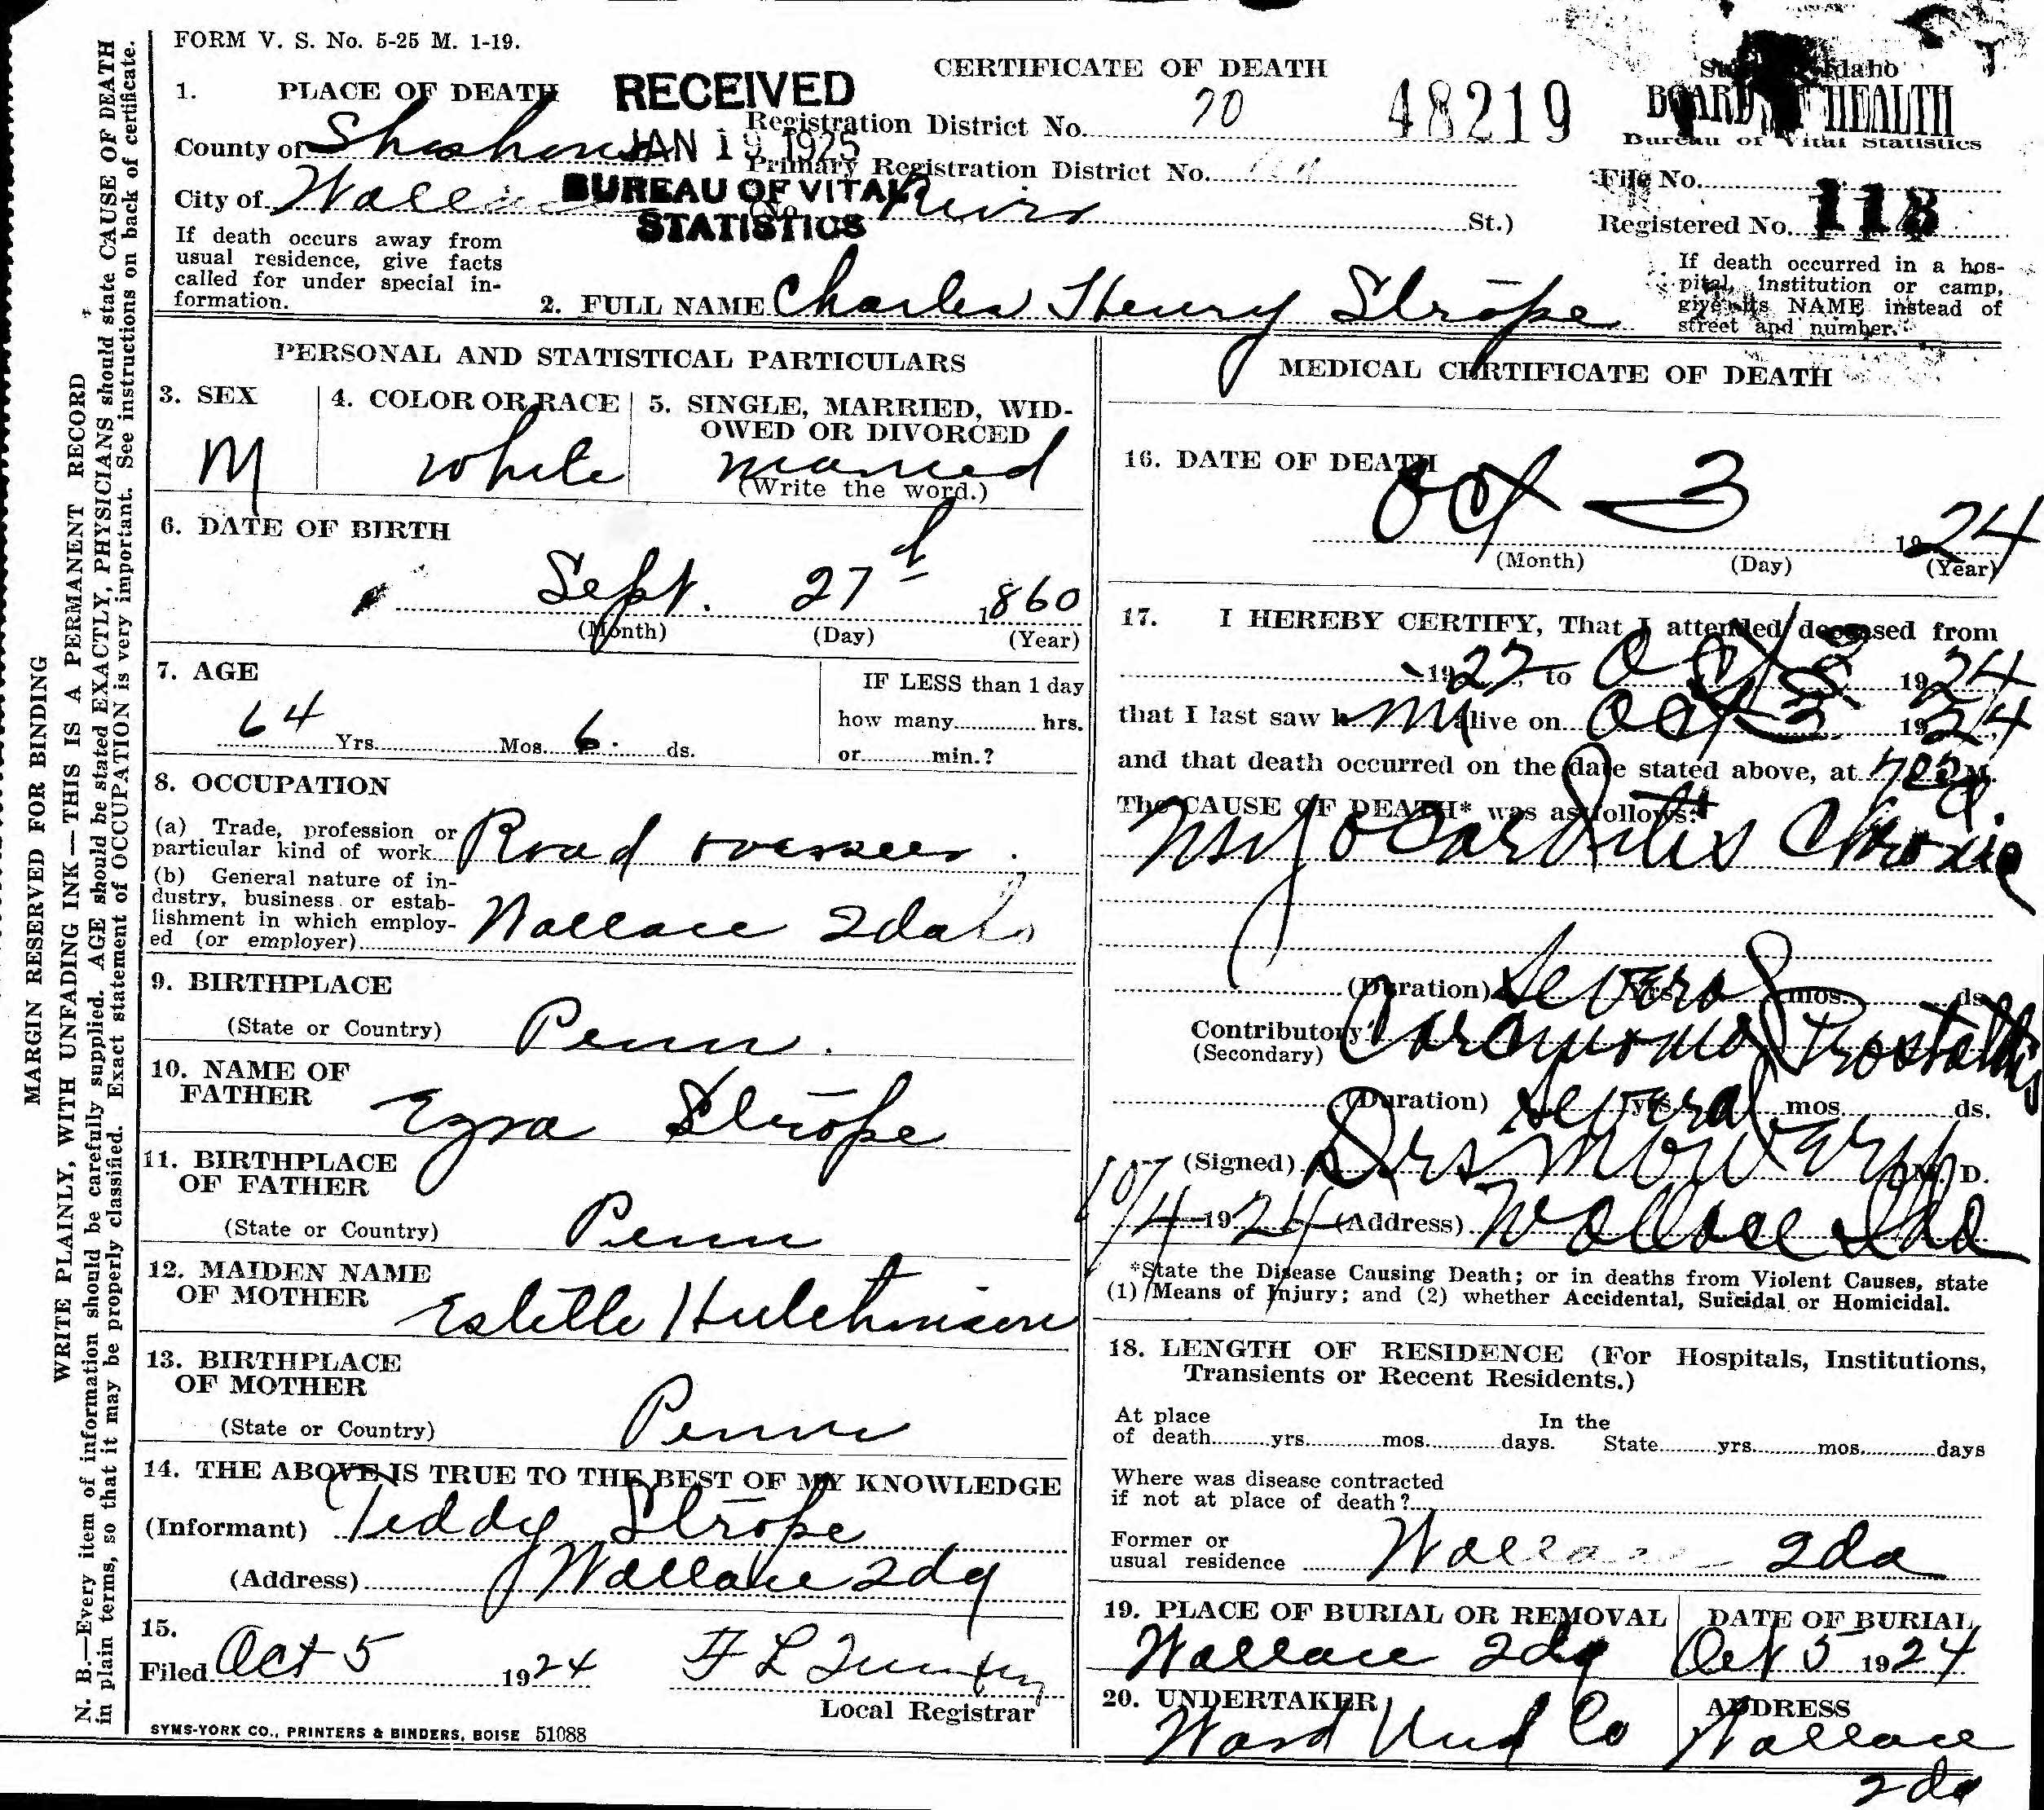 FORM V. S. No. 5-25 M. 1-19.
CERTIFICATE OF DEATH
State of Idaho
BOARD OF HEALTH
Bureau of Vital Statistics
48219
RECEIVED
JAN 19 1925
BUREAU OF VITAL
STATISTICS
1. PLACE OF DEATH
Registration District No. 70
County of Shoshone
Primary Registration District No.
File No.
City of Wallace (No. St.)
Registered No. 118
If death occurs away from
usual residence, give facts
called for under special in-
formation.
If death occurred in a hos-
pital, institution or camp,
give its NAME instead of
street and number.
2. FULL NAME Charles Henry Strope
PERSONAL AND STATISTICAL PARTICULARS
3. SEX
M
4. COLOR OR RACE
White
5. SINGLE, MARRIED, WID-
OWED OR DIVORCED
married
(Write the word.)
6. DATE OF BIRTH
Sept. 27th 1860
(Month) (Day) (Year)
7. AGE
64 Yrs. Mos. 6. ds.
IF LESS than 1 day
how many hrs.
or min.?
8. OCCUPATION
(a) Trade, profession or
particular kind of work Road overseer.
(b) General nature of in-
dustry, business or estab-
lishment in which employ-
ed (or employer) Wallace Idaho
9. BIRTHPLACE
(State or Country) Penn.
10. NAME OF
FATHER Ezra Strope
11. BIRTHPLACE
OF FATHER
(State or Country) Penn
12. MAIDEN NAME
OF MOTHER Estelle Hutchinson
13. BIRTHPLACE
OF MOTHER
(State or Country) Penn
14. THE ABOVE IS TRUE TO THE BEST OF MY KNOWLEDGE
(Informant) Teddy Strope
(Address) Wallace Ida
15.
Filed Oct 5 1924 F L
Local Registrar
SYMS-YORK CO., PRINTERS & BINDERS, BOISE 51088
MEDICAL CERTIFICATE OF DEATH
16. DATE OF DEATH
Oct 3 1924
(Month) (Day) (Year)
17. I HEREBY CERTIFY, That I attended deceased from
1922, to Oct 3 1924
that I last saw him alive on Oct 3 1924
and that death occurred on the date stated above, at M.
The CAUSE OF DEATH* was as follows:
Myocarditis Chronic
(Duration) Several yrs. mos. ds.
Contributory Carcinoma Prostatis
(Secondary)
(Duration) Several yrs. mos. ds.
(Signed) Drs Mowery M. D.
10/4 1924 (Address) Wallace Ida
*State the Disease Causing Death; or in deaths from Violent Causes, state
(1) Means of Injury; and (2) whether Accidental, Suicidal or Homicidal.
18. LENGTH OF RESIDENCE (For Hospitals, Institutions,
Transients or Recent Residents.)
At place
of death yrs. mos. days.
In the
State yrs. mos. days
Where was disease contracted
if not at place of death?
Former or
usual residence Wallace Ida
19. PLACE OF BURIAL OR REMOVAL
Wallace Ida
DATE OF BURIAL
Oct 5 1924
20. UNDERTAKER
Ward Und Co
ADDRESS
Wallace
Ida
MARGIN RESERVED FOR BINDING
WRITE PLAINLY, WITH UNFADING INK—THIS IS A PERMANENT RECORD
N. B.—Every item of information should be carefully supplied. AGE should be stated EXACTLY, PHYSICIANS should state CAUSE OF DEATH
in plain terms, so that it may be properly classified. Exact statement of OCCUPATION is very important. See instructions on back of certificate.